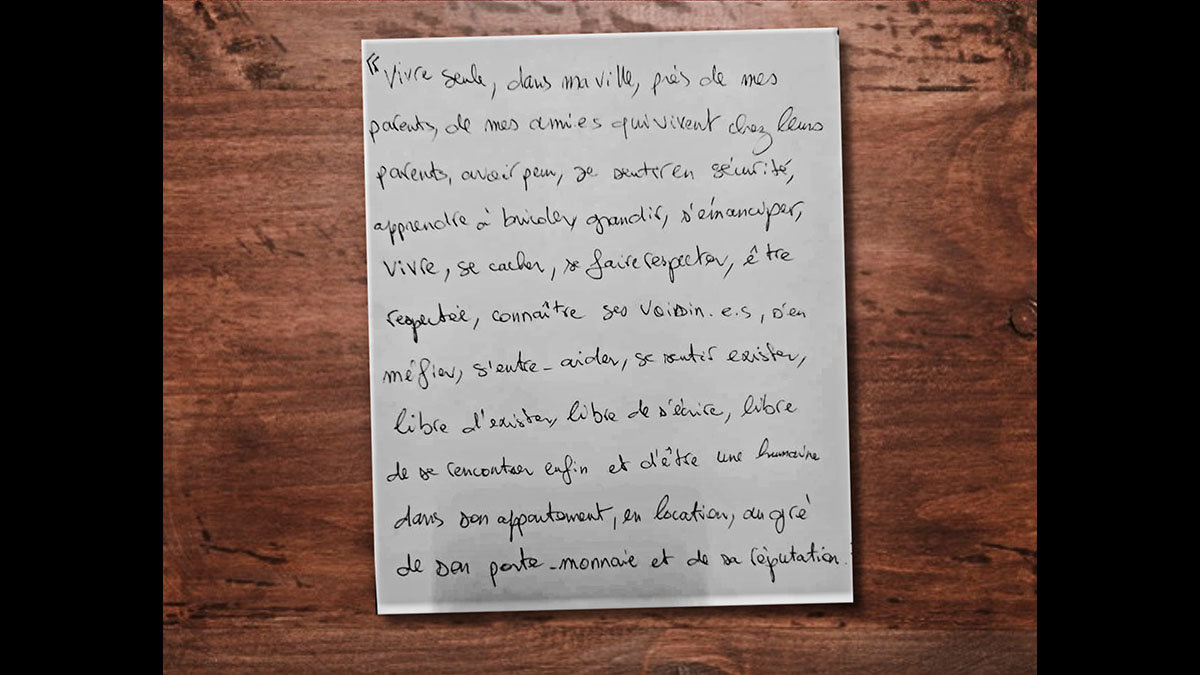 « Vivre seule, dans ma ville, près de mes
parents, de mes amies qui vivent chez leurs
parents, avoir peur, se sentir en sécurité,
apprendre à bricoler, grandir, s'émanciper,
vivre, se cacher, se faire respecter, être
respectée, connaître ses voisin.e.s, s'en
méfier, s'entre-aider, se sentir exister,
libre d'exister, libre de s'écrire, libre
de se rencontrer enfin et d'être une humaine
dans son appartement, en location, au gré
de son porte-monnaie et de sa réputation.